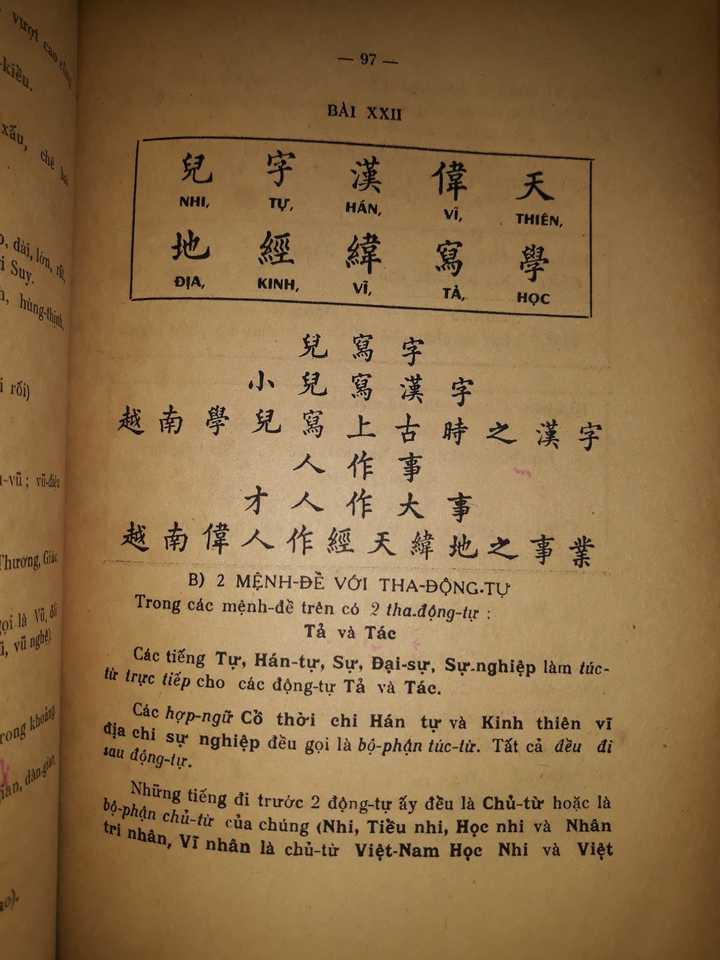 vượt cao
-kiều.
xấu, chê
dài, lớn, rất,
i Suy.
hùng-thịnh,
i rối)
-vũ ; vũ-điệu
Thương, Giác
gọi là Vũ, đổi
i, vũ nghệ).
rong khoảng
gian, dân-gian
ao).
— 97 —
BÀI XXII
兒 字 漢 偉 天
NHI, TỰ, HÁN, VĨ, THIÊN,
地 經 緯 寫 學
ĐỊA, KINH, VĨ, TẢ, HỌC
兒 寫 字
小 兒 寫 漢 字
越 南 學 兒 寫 上 古 時 之 漢 字
人 作 事
才 人 作 大 事
越 南 偉 人 作 經 天 緯 地 之 事 業
B) 2 MỆNH-ĐỀ VỚI THA-ĐỘNG-TỰ
Trong các mệnh-đề trên có 2 tha-động-tự :
Tả và Tác
Các tiếng Tự, Hán-tự, Sự, Đại-sự, Sự-nghiệp làm túc-
từ trực tiếp cho các động-tự Tả và Tác.
Các hợp-ngữ Cổ thời chi Hán tự và Kinh thiên vĩ
địa chi sự nghiệp đều gọi là bộ-phận túc-từ. Tất cả đều đi
sau động-tự.
Những tiếng đi trước 2 động-tự ấy đều là Chủ-từ hoặc là
bộ-phận chủ-từ của chúng (Nhi, Tiểu nhi, Học nhi và Nhân
tri nhân, Vĩ nhân là chủ-từ Việt-Nam Học Nhi và Việt